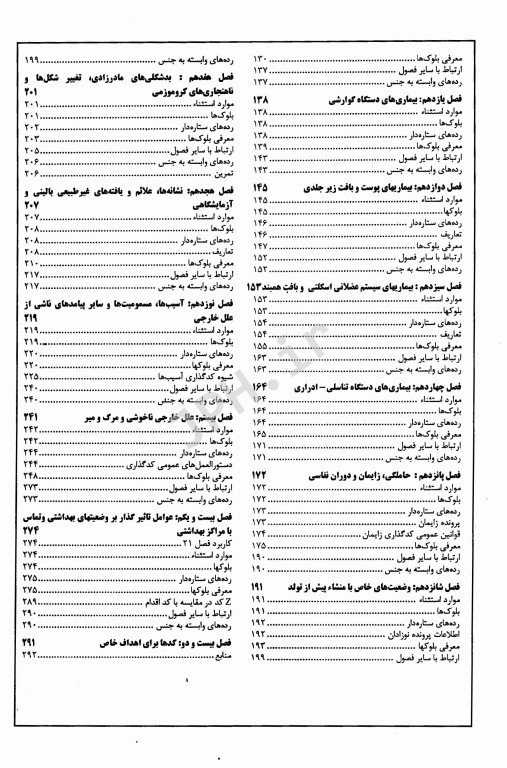 معرفی بلوک‌ها ..... ۱۳۰
ارتباط با سایر فصول ..... ۱۳۷
رده‌های وابسته به جنس ..... ۱۳۷
فصل یازدهم: بیماری‌های دستگاه گوارشی ۱۳۸
موارد استثناء ..... ۱۳۸
بلوک‌ها ..... ۱۳۸
رده‌های ستاره‌دار ..... ۱۳۸
معرفی بلوک‌ها ..... ۱۳۹
ارتباط با سایر فصول ..... ۱۴۳
رده‌های وابسته به جنس ..... ۱۴۳
فصل دوازدهم: بیماریهای پوست و بافت زیر جلدی ۱۴۵
موارد استثناء ..... ۱۴۵
بلوکها ..... ۱۴۵
رده‌های ستاره‌دار ..... ۱۴۶
تعاریف ..... ۱۴۶
معرفی بلوک‌ها ..... ۱۴۷
ارتباط با سایر فصول ..... ۱۵۲
رده‌های وابسته به جنس ..... ۱۵۲
فصل سیزدهم: بیماریهای سیستم عضلانی اسکلتی و بافت همبند ۱۵۳
موارد استثناء ..... ۱۵۳
بلوکها ..... ۱۵۳
رده‌های ستاره‌دار ..... ۱۵۴
تعاریف ..... ۱۵۴
معرفی بلوک‌ها ..... ۱۵۵
ارتباط با سایر فصول ..... ۱۶۳
رده‌های وابسته به جنس ..... ۱۶۳
فصل چهاردهم: بیماری‌های دستگاه تناسلی – ادراری ۱۶۴
موارد استثناء ..... ۱۶۴
بلوک‌ها ..... ۱۶۴
رده‌های ستاره‌دار ..... ۱۶۴
معرفی بلوک‌ها ..... ۱۶۵
ارتباط با سایر فصول ..... ۱۷۱
رده‌های وابسته به جنس ..... ۱۷۱
فصل پانزدهم: حاملگی، زایمان و دوران نفاسی ۱۷۲
موارد استثناء ..... ۱۷۲
بلوک‌ها ..... ۱۷۲
رده‌های ستاره‌دار ..... ۱۷۳
پرونده زایمان ..... ۱۷۳
قوانین عمومی کدگذاری زایمان ..... ۱۷۴
معرفی بلوک‌ها ..... ۱۷۵
ارتباط با سایر فصول ..... ۱۹۰
رده‌های وابسته به جنس ..... ۱۹۰
فصل شانزدهم: وضعیت‌های خاص با منشاء پیش از تولد ۱۹۱
موارد استثناء ..... ۱۹۱
بلوک‌ها ..... ۱۹۱
رده‌های ستاره‌دار ..... ۱۹۲
اطلاعات پرونده نوزادان ..... ۱۹۲
معرفی بلوکها ..... ۱۹۳
ارتباط با سایر فصول ..... ۱۹۹
رده‌های وابسته به جنس ..... ۱۹۹
فصل هفدهم : بدشکلی‌های مادرزادی، تغییر شکل‌ها و
ناهنجاری‌های کروموزمی ۲۰۱
موارد استثناء ..... ۲۰۱
بلوک‌ها ..... ۲۰۱
رده‌های ستاره‌دار ..... ۲۰۲
معرفی بلوک‌ها ..... ۲۰۳
ارتباط با سایر فصول ..... ۲۰۵
رده‌های وابسته به جنس ..... ۲۰۶
تمرین ..... ۲۰۶
فصل هجدهم: نشانه‌ها، علائم و یافته‌های غیرطبیعی بالینی و
آزمایشگاهی ۲۰۷
موارد استثناء ..... ۲۰۷
بلوک‌ها ..... ۲۰۸
رده‌های ستاره‌دار ..... ۲۰۸
تعاریف ..... ۲۰۸
معرفی بلوک‌ها ..... ۲۱۰
ارتباط با سایر فصول ..... ۲۱۷
رده‌های وابسته به جنس ..... ۲۱۷
فصل نوزدهم: آسیب‌ها، مسمومیت‌ها و سایر پیامدهای ناشی از
علل خارجی ۲۱۹
موارد استثناء ..... ۲۱۹
بلوک‌ها ..... ۲۱۹
رده‌های ستاره‌دار ..... ۲۲۰
معرفی بلوکها ..... ۲۲۰
شیوه کدگذاری آسیب‌ها ..... ۲۲۵
ارتباط با سایر فصول ..... ۲۴۰
رده‌های وابسته به جنس ..... ۲۴۰
فصل بیستم: علل خارجی ناخوشی و مرگ و میر ۲۴۱
موارد استثناء ..... ۲۴۲
بلوک‌ها ..... ۲۴۲
رده‌های ستاره‌دار ..... ۲۴۴
دستورالعمل‌های عمومی کدگذاری ..... ۲۴۴
معرفی بلوک‌ها ..... ۲۴۸
ارتباط با سایر فصول ..... ۲۷۳
رده‌های وابسته به جنس ..... ۲۷۳
فصل بیست و یکم: عوامل تاثیر گذار بر وضعیتهای بهداشتی وتماس
با مراکز بهداشتی ۲۷۴
کاربرد فصل ۲۱ ..... ۲۷۴
موارد استثناء ..... ۲۷۴
بلوکها ..... ۲۷۴
رده‌های ستاره‌دار ..... ۲۷۵
معرفی بلوکها ..... ۲۷۵
Z کد در مقایسه با کد اقدام ..... ۲۸۹
ارتباط با سایر فصول ..... ۲۹۰
رده‌های وابسته به جنس ..... ۲۹۰
فصل بیست و دو: کدها برای اهداف خاص ۲۹۱
منابع ..... ۲۹۲